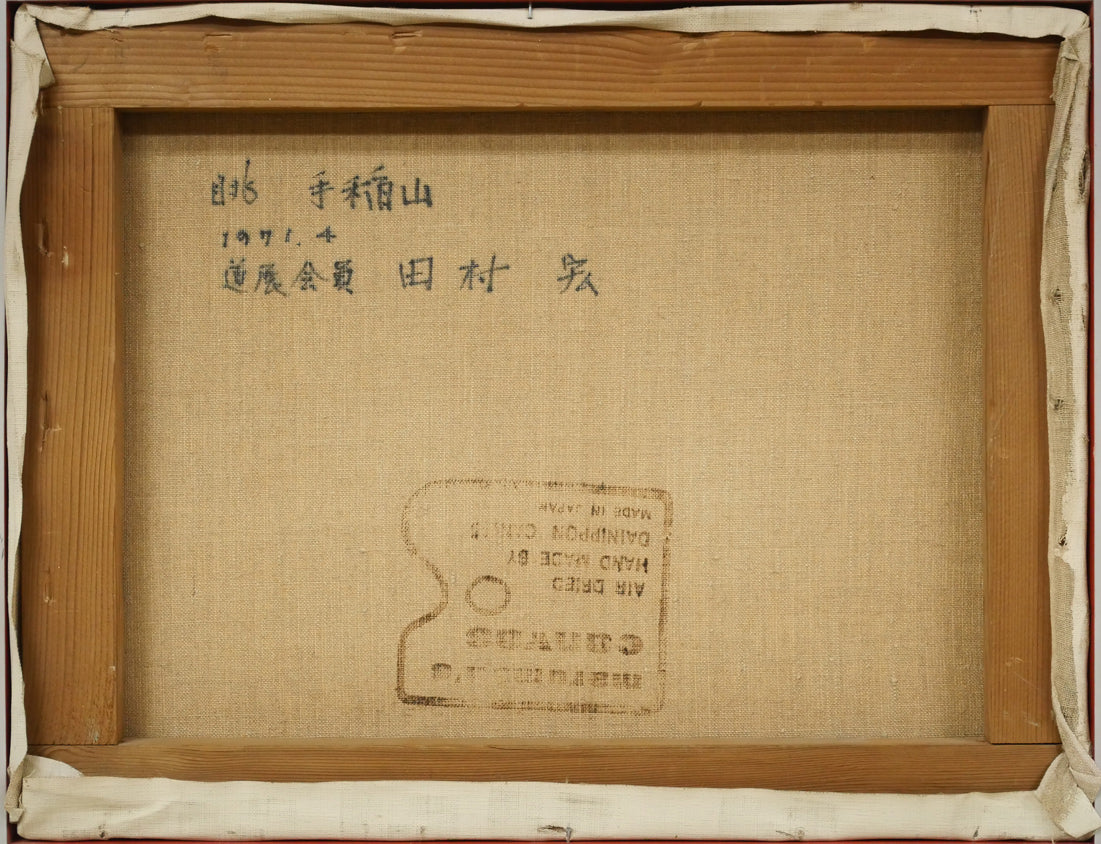 眺 手稲山
1971.4
道展会員 田村 宏
maruoka's
canvas
AIR DRIED
HAND MADE BY
DAINIPPON
MADE IN JAPAN